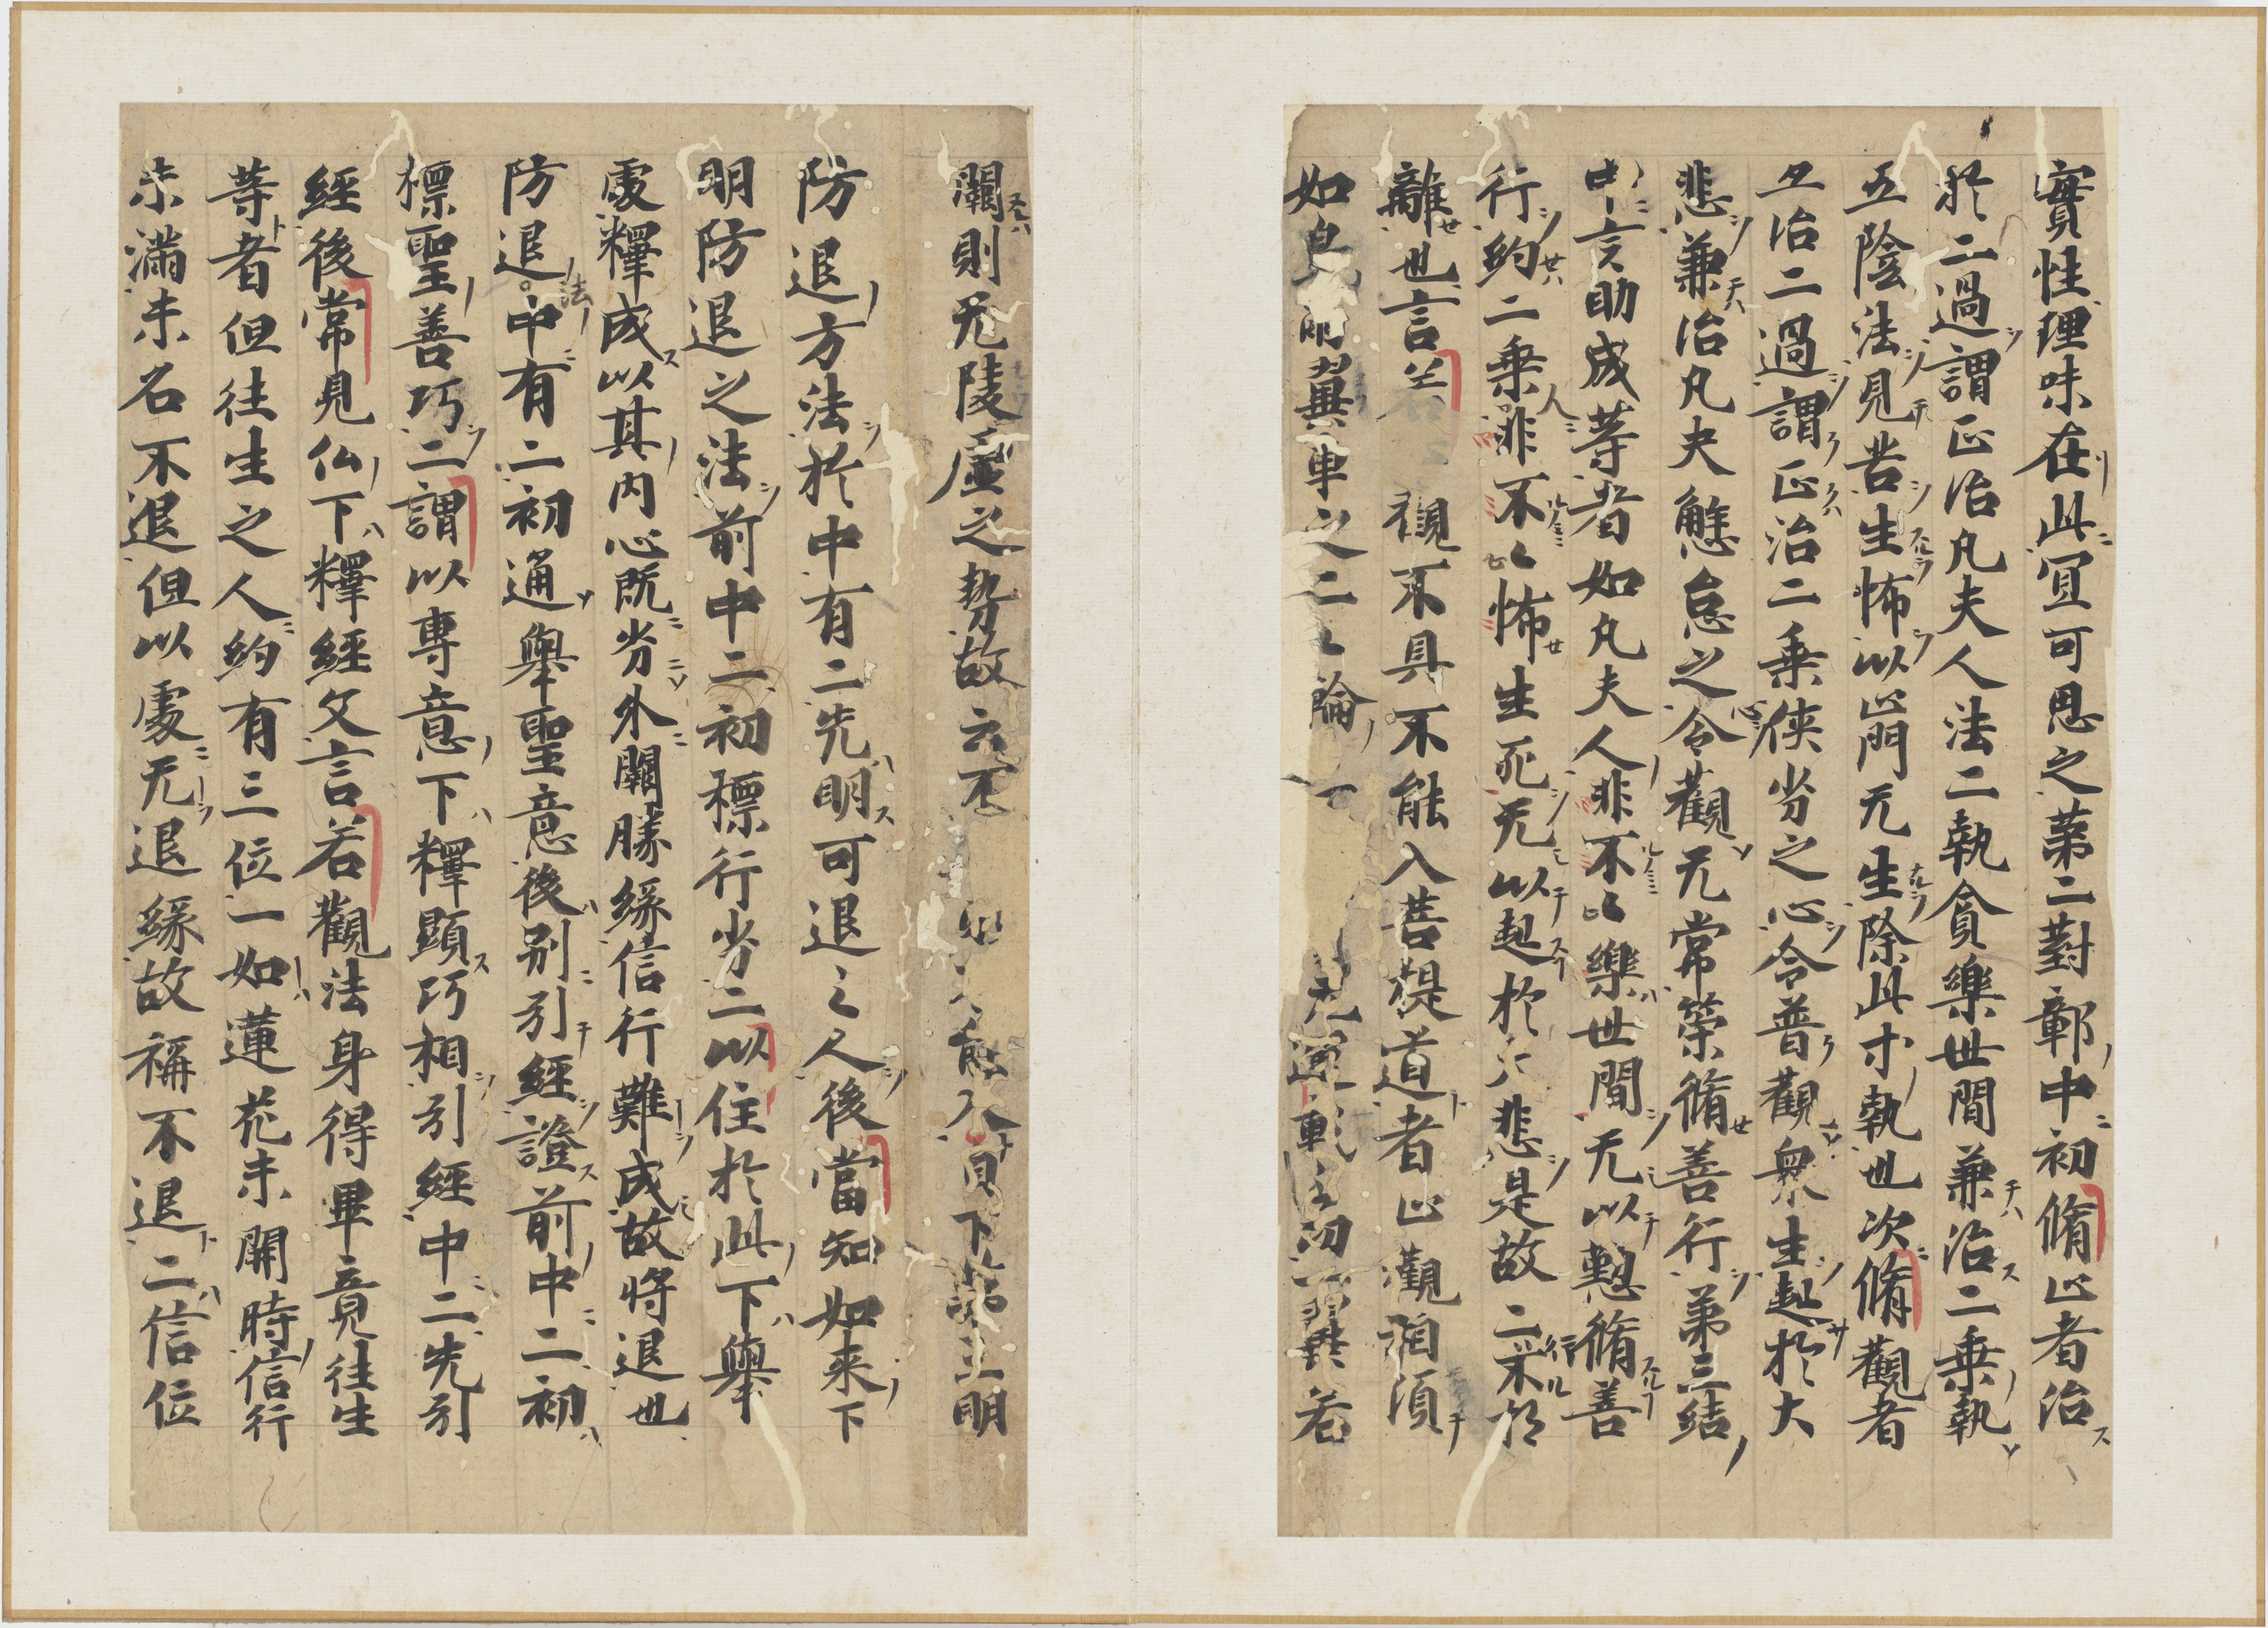 實性理味在此冝可思之第二對鄣中初脩止者治
於二過謂正治凡夫人法二執貪樂世間兼治二乗執
五陰法見苦生怖以此門无生除此寸執也次脩觀者
亦治二過謂正治二乗侠劣之心令普觀衆生起於大
悲兼治凡夫懈怠之心令觀无常策脩善行第三結
中言助成等者如凡夫人非不以樂世間无以懃脩善
行約二乗人非不以怖生死无以起於大悲是故二行不
離也言若 觀不具不能入菩提道者止觀相須
如鳥 翼車之二 輪 若
闕則无陵虛之勢故云不 明
防退方法於中有二先明可退之人後當知如来下
明防退之法前中二初標行劣二以住於此下舉
處釋成以其内心既劣外闕勝緣信行難成故將退也
防退法中有二初通舉聖意後別引經證前中二初
標聖善巧二謂以專意下釋顯巧相引經中二先引
經後常見仏下釋經經文言若觀法身得畢竟往生
等者但往生之人約有三位一如蓮花未開時信行
未滿未名不退但以處无退緣故稱不退二信位